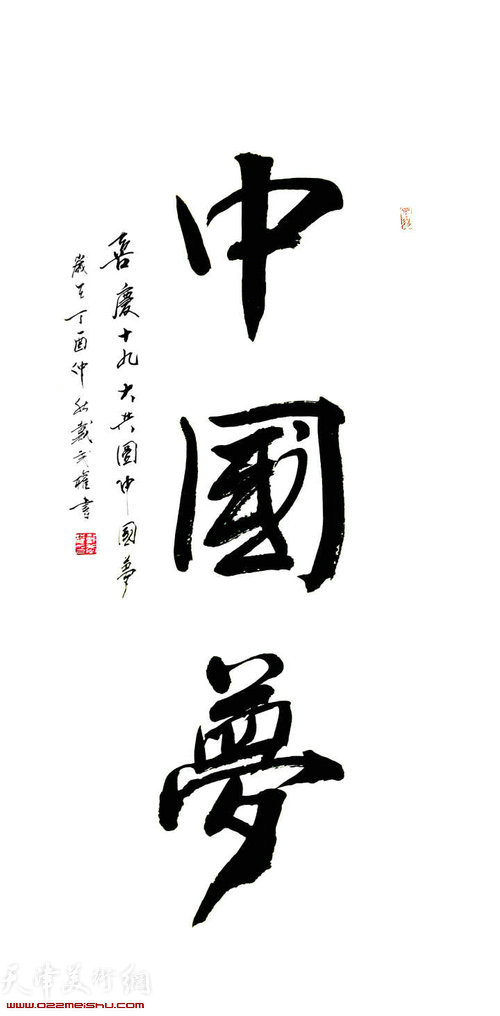 中國夢
喜慶十九大共圓中國夢
歲在丁酉仲秋戴武權書
天津美术網
www.022meishu.com